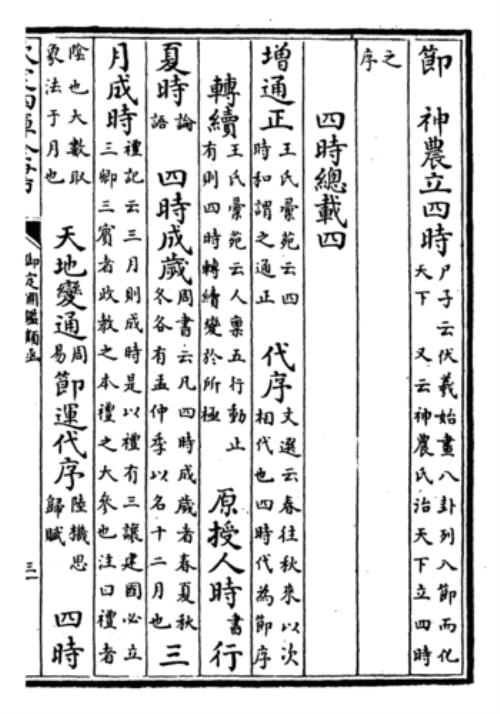 節　神農立四時 尸子云伏羲始畫八卦列八節而化
天下　又云神農氏治天下立四時
之
序
四時總載四
增通正 王氏彙苑云四
時和謂之通正　代序 文選云春往秋來以次
相代也四時代為節序
轉續 王氏彙苑云人稟五行動止
有則四時轉續變於所極　原授人時 書　行
夏時 論
語　四時成歲 周書云凡四時成歲者春夏秋
冬各有孟仲季以名十二月也　三
月成時 禮記云三月則成時是以禮有三讓建國必立
三卿三賓者政教之本禮之大參也注曰禮者
陰也大數取
象法于月也　天地變通 周
易　節運代序 陸機思
歸賦　四時
御定淵鑑類函